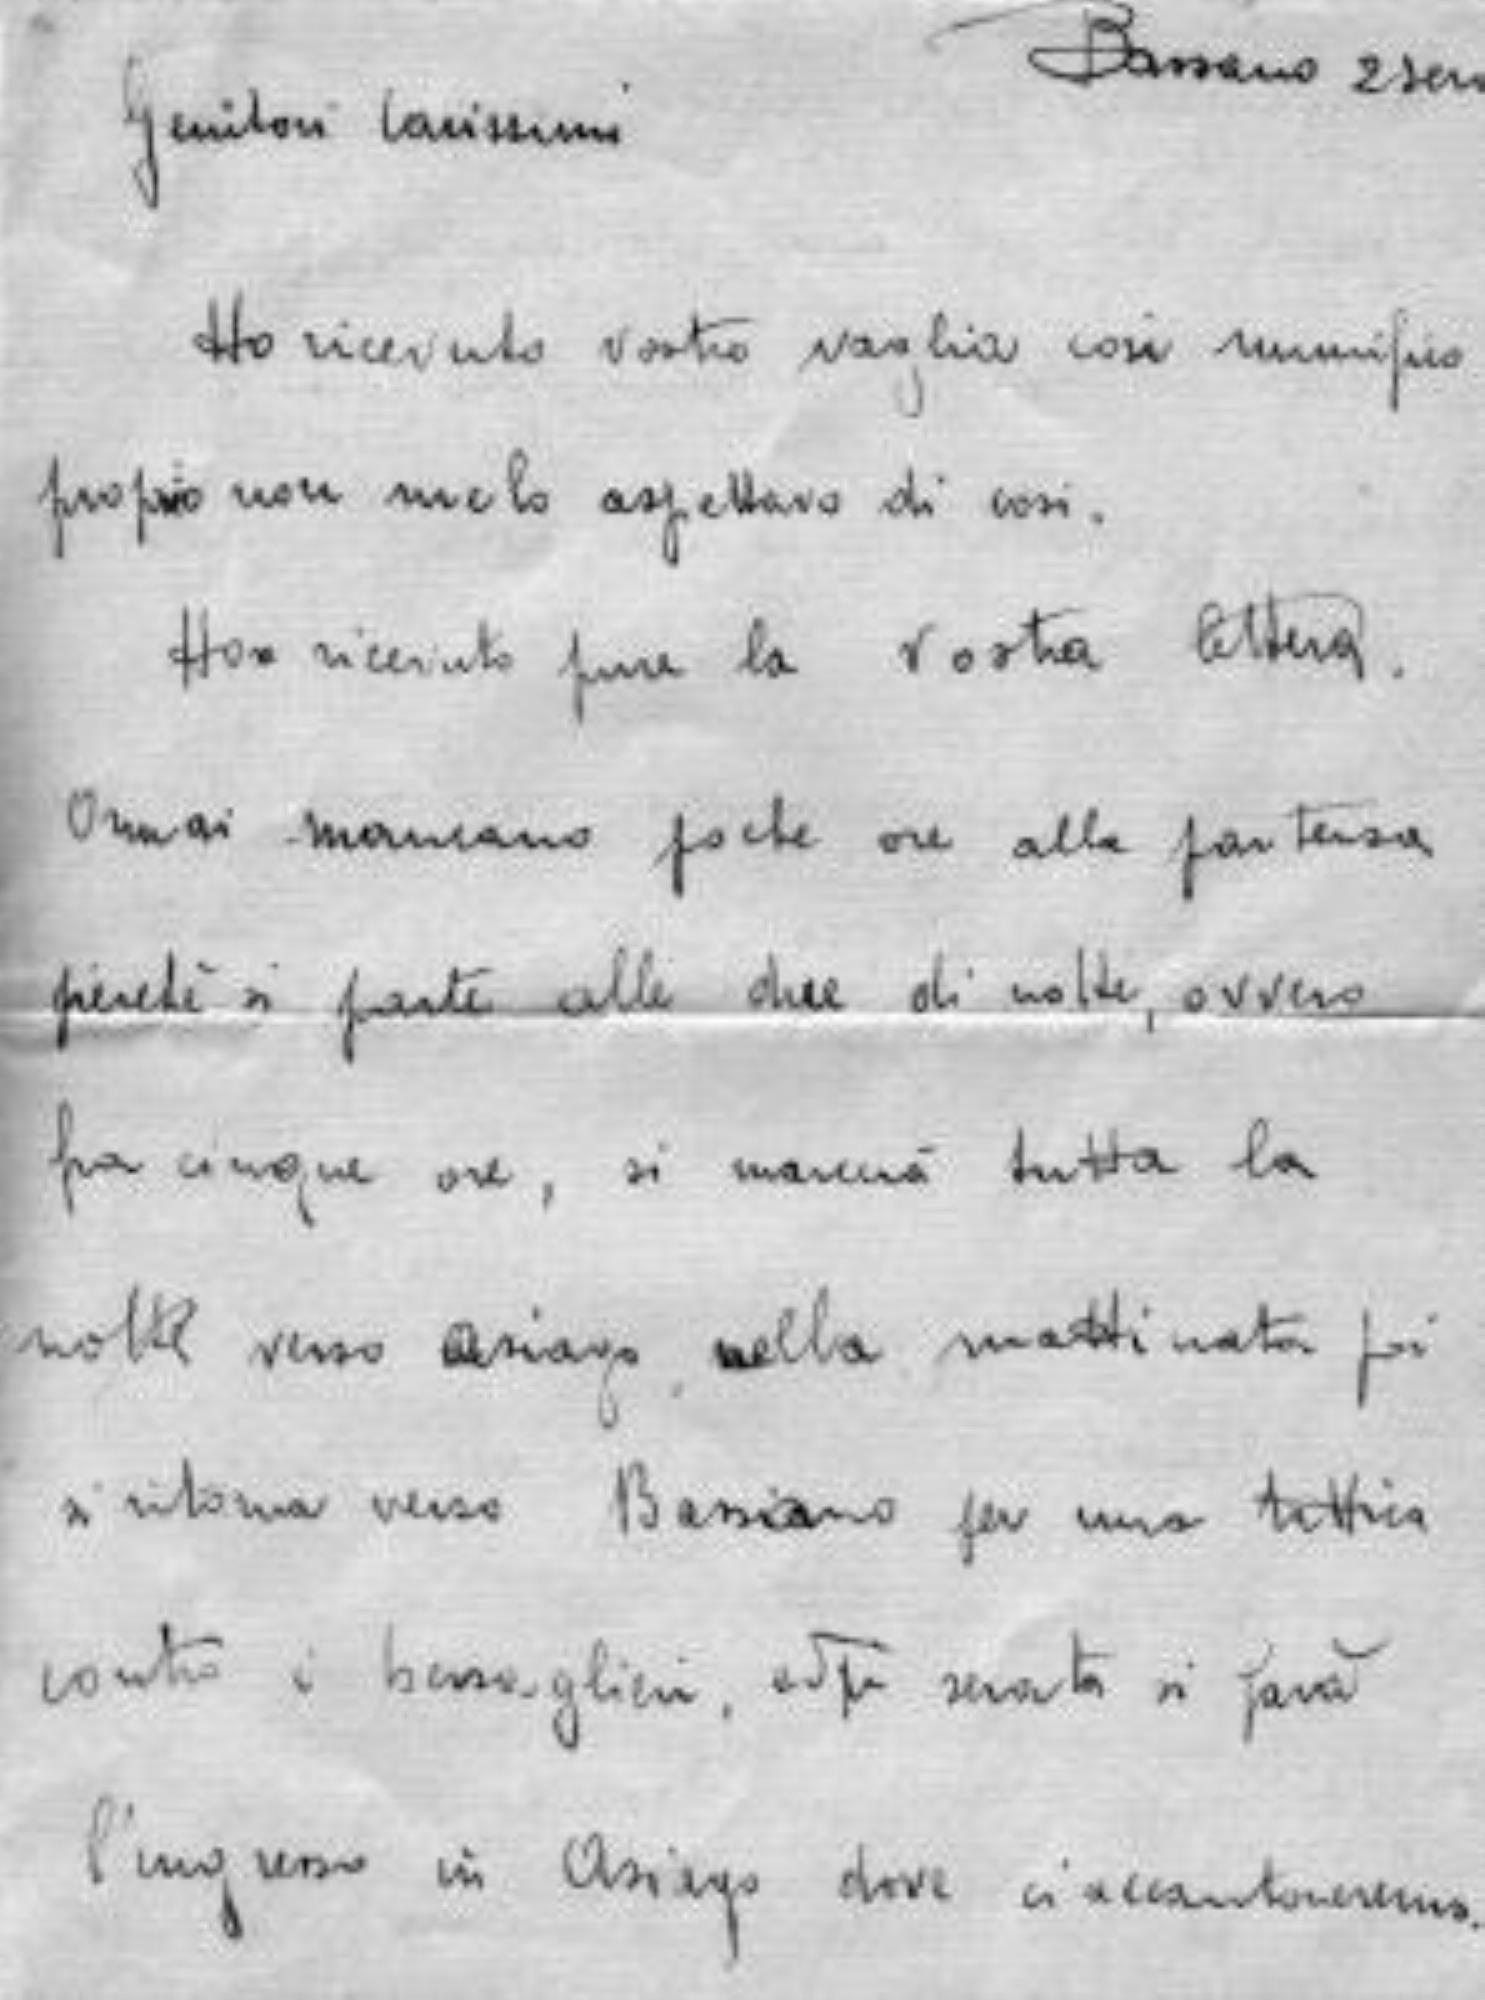 Bassano 2 sera
Genitori Carissimi
Ho ricevuto vostro vaglia così munifico
proprio non me lo aspettavo di così.
Ho ricevuto pure la vostra lettera.
Ormai mancano poche ore alla partenza
perchè si parte alle due di notte, ovvero
fra cinque ore, si marcerà tutta la
notte verso Asiago, nella mattinata poi
si ritorna verso Bassano per una tattica
contro i bersaglieri, serata si farà
l'ingresso in Asiago dove ci accantoneremo.